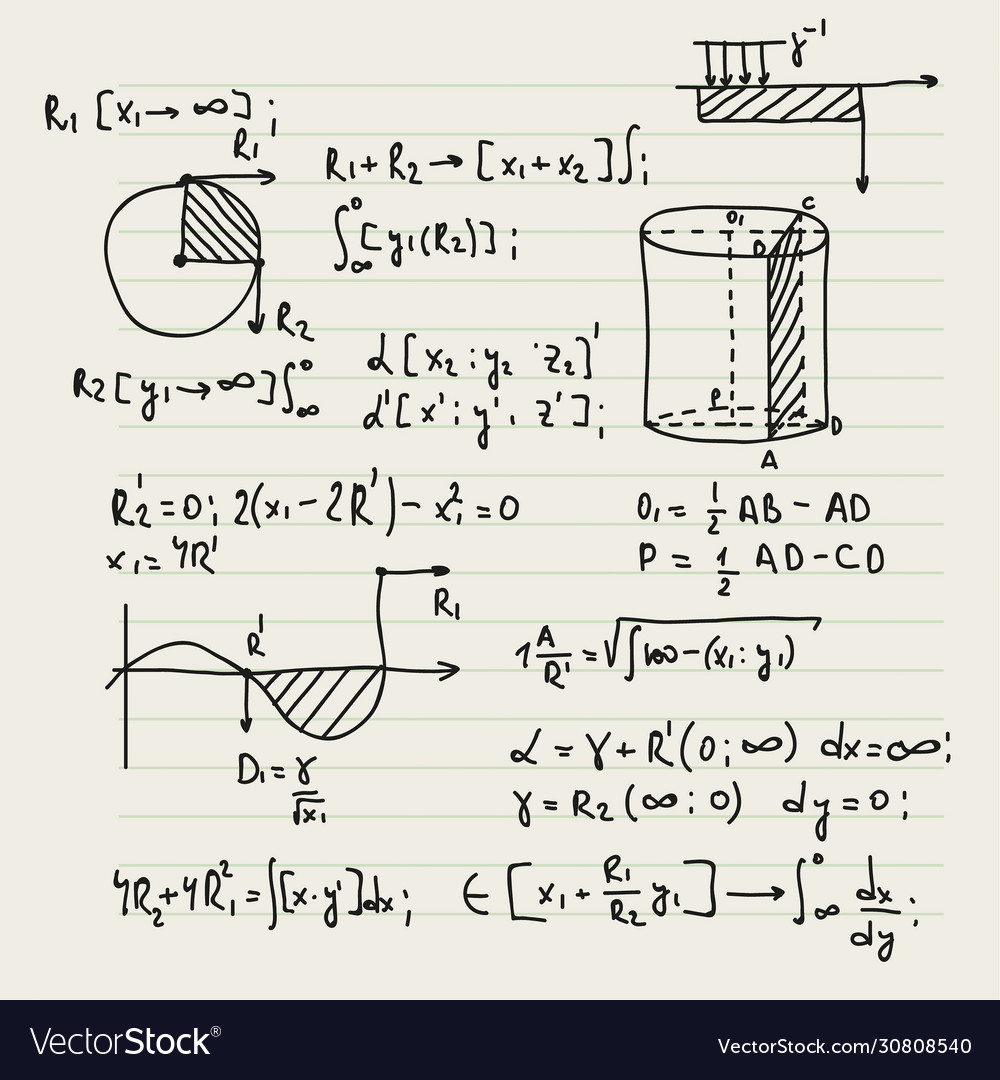 γ⁻¹
R₁ [x₁→ ∞] ;
R₁
R₁+R₂→[x₁+x₂]∫;
∫₀∞[y₁(R₂)] ;
O₁ C
B
R₂
α[x₂ : y₂ · z₂]'
R₂[y₁→∞]∫₀∞
α'[x' : y' · z'];
P
D
A
R₂'=0; 2(x₁-2R')-x₁²=0
O₁= 1/2 AB - AD
x₁=4R'
P = 1/2 AD-CD
R₁
R'
1 A/R' = √∫100-(x₁: y₁)
D₁= γ/√x₁
α = γ+R'(0;∞) dx=∞;
γ=R₂(∞:0) dy=0;
4R₂+4R₁²=∫[x·y']dx;
∈[x₁+ R₁/R₂ y₁]→∫₀∞ dx/dy;
VectorStock®
VectorStock.com/30808540